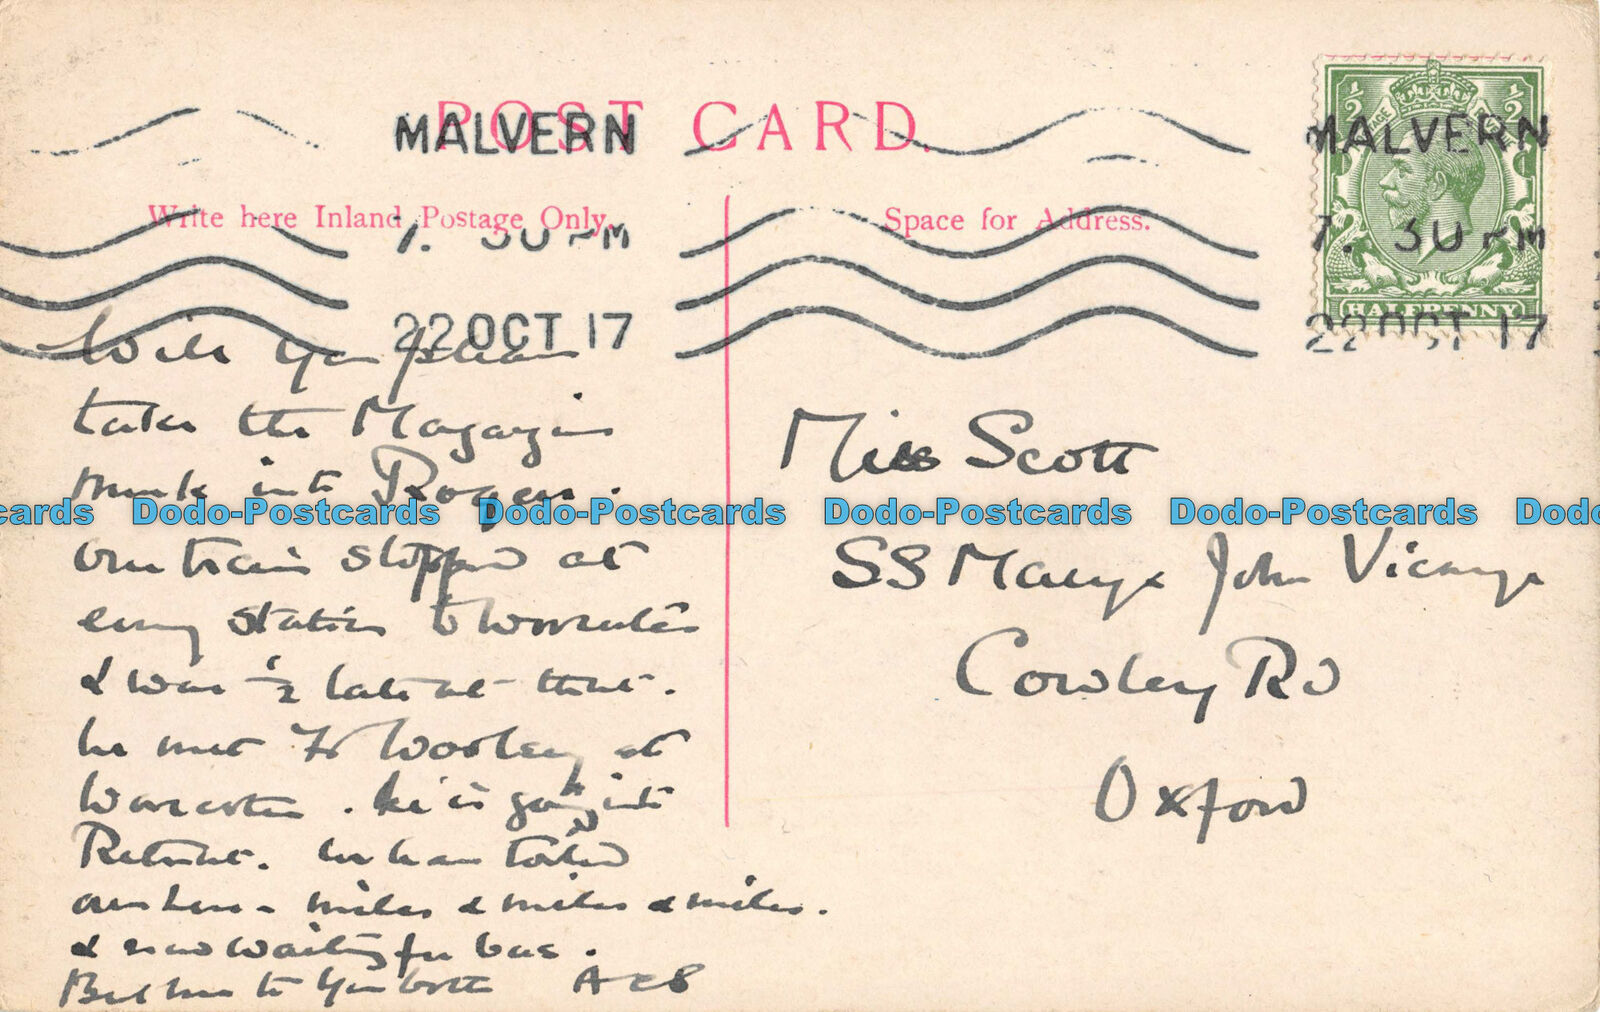 POST CARD.
MALVERN
MALVERN
Write here Inland Postage Only.
Space for Address.
7. 30 PM
7. 30 PM
22 OCT 17
22 OCT 17
HALFPENNY
½ ½
Will you please
take the Magazine
into Rogers.
Our train stopped at
every station to Worcester
& was ½ late at that.
he met Fr Worley at
Worcester. he is going into
Retreat. We have
over here - miles & miles & miles.
& now waiting for bus.
Best love to you both ACB
Miss Scott
SS Mary & John Vicarage
Cowley Rd
Oxford
cards Dodo-Postcards Dodo-Postcards Dodo-Postcards Dodo-Postcards Dodo